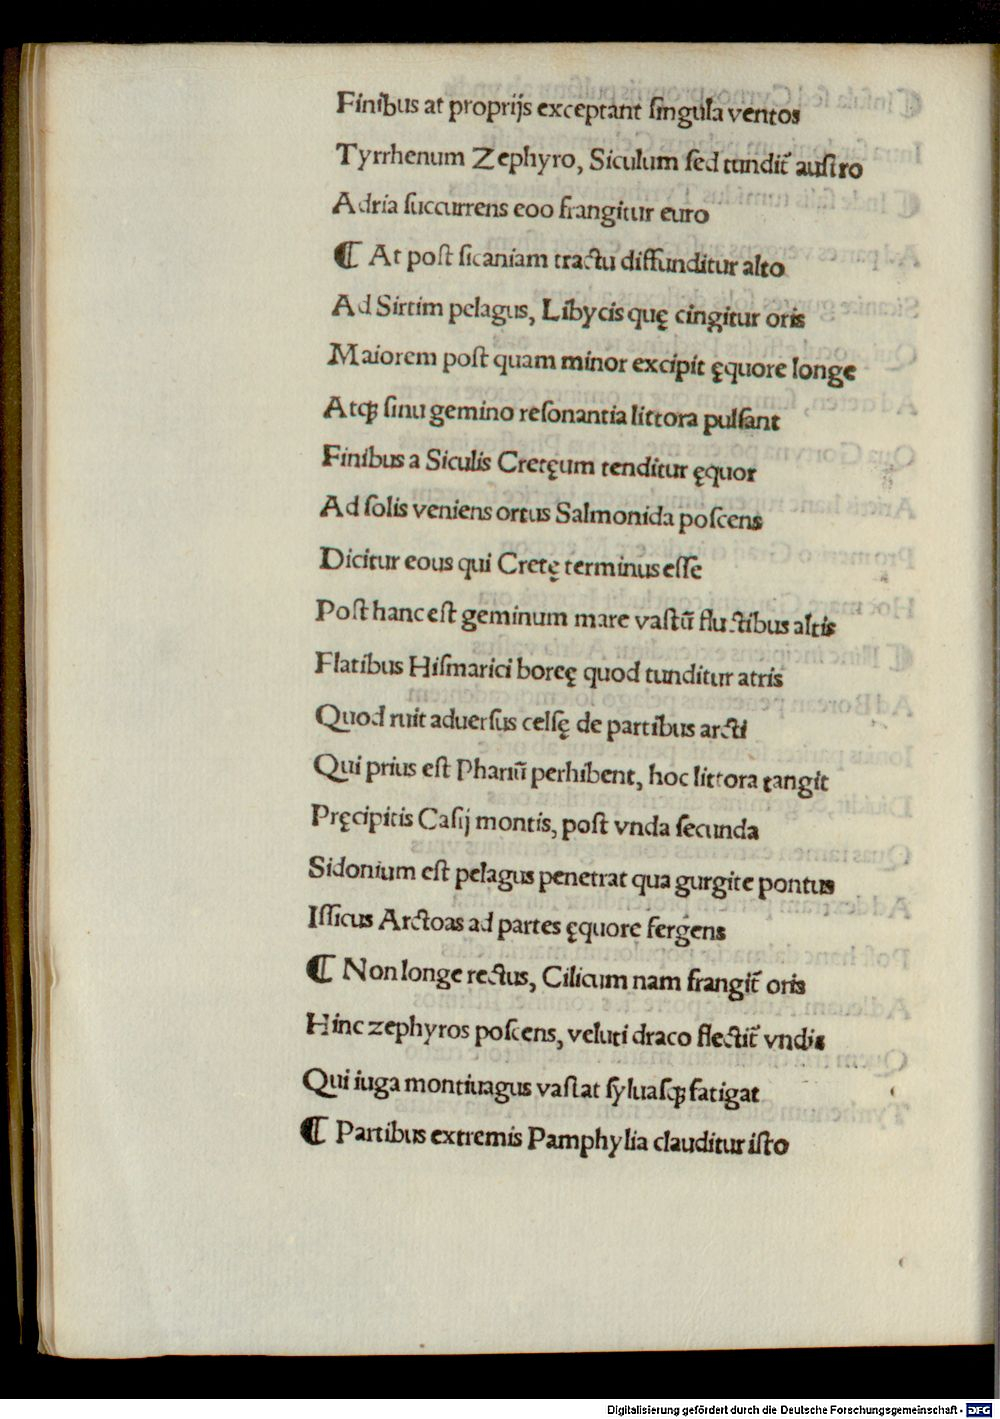 Finibus at proprijs exceptant ſingula ventos
Tyrrhenum Zephyro, Siculum ſed tundit᷑ auſtro
Adria ſuccurrens eoo frangitur euro
¶ At poſt ſicaniam tractu diffunditur alto
Ad Sirtim pelagus, Libycis quę cingitur oris
Maiorem poſt quam minor excipit ęquore longe
Atqꝫ ſinu gemino reſonantia littora pulſant
Finibus a Siculis Cretęum tenditur ęquor
Ad ſolis veniens ortus Salmonida poſcens
Dicitur eous qui Cretę terminus eſſe
Poſt hanc eſt geminum mare vaſtū fluctibus altis
Flatibus Hiſmarici boreę quod tunditur atris
Quod ruit aduerſus celſę de partibus arcti
Qui prius eſt Phariū perhibent, hoc littora tangit
Pręcipitis Caſij montis, poſt vnda ſecunda
Sidonium eſt pelagus penetrat qua gurgite pontus
Iſſicus Arctoas ad partes ęquore fergens
¶ Non longe rectus, Cilicum nam frangit᷑ oris
Hinc zephyros poſcens, veluti draco flectit᷑ vndis
Qui iuga montiuagus vaſtat ſyluaſqꝫ fatigat
¶ Partibus extremis Pamphylia clauditur iſto
Digitalisierung gefördert durch die Deutsche Forschungsgemeinschaft - DFG